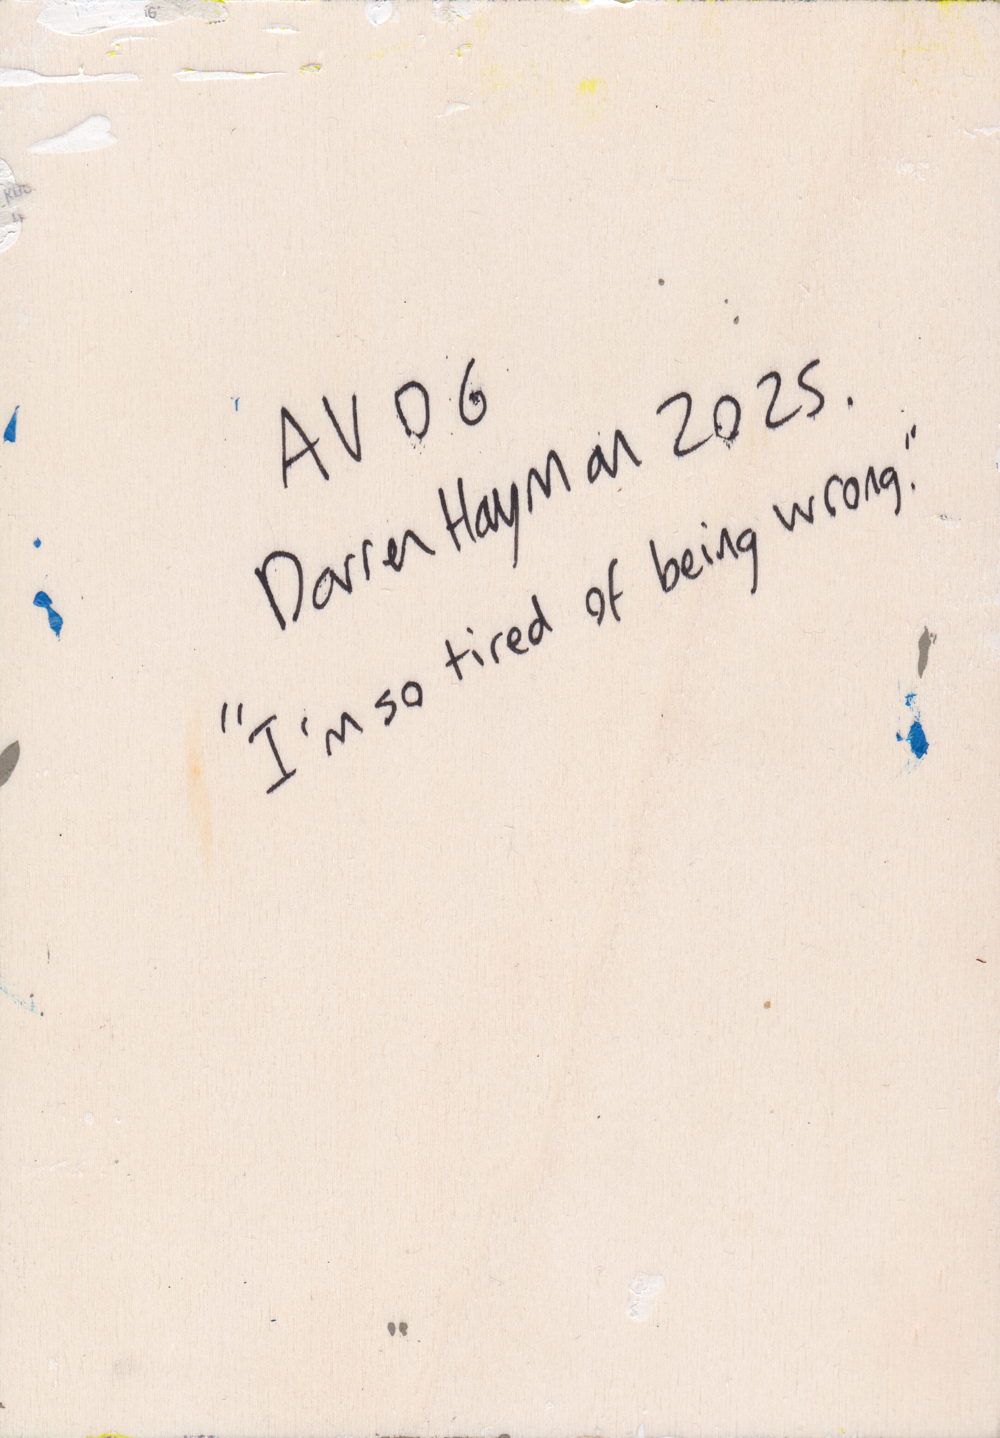 AV 06
Darren Hayman 2025.
"I'm so tired of being wrong."